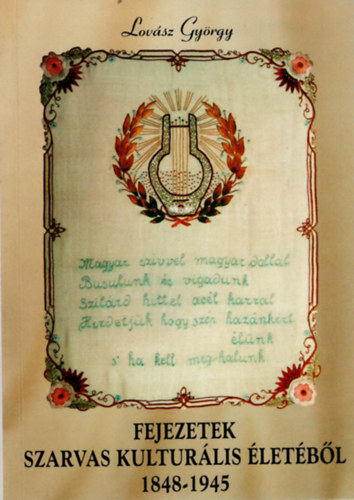 Lovász György
Magyar szívvel magyar dallal
Busulunk és vigadunk
Szilárd hittel acél karral
Hirdetjük hogy szép hazánkért
élünk
s' ha kell meg halunk.
FEJEZETEK
SZARVAS KULTURÁLIS ÉLETÉBŐL
1848-1945